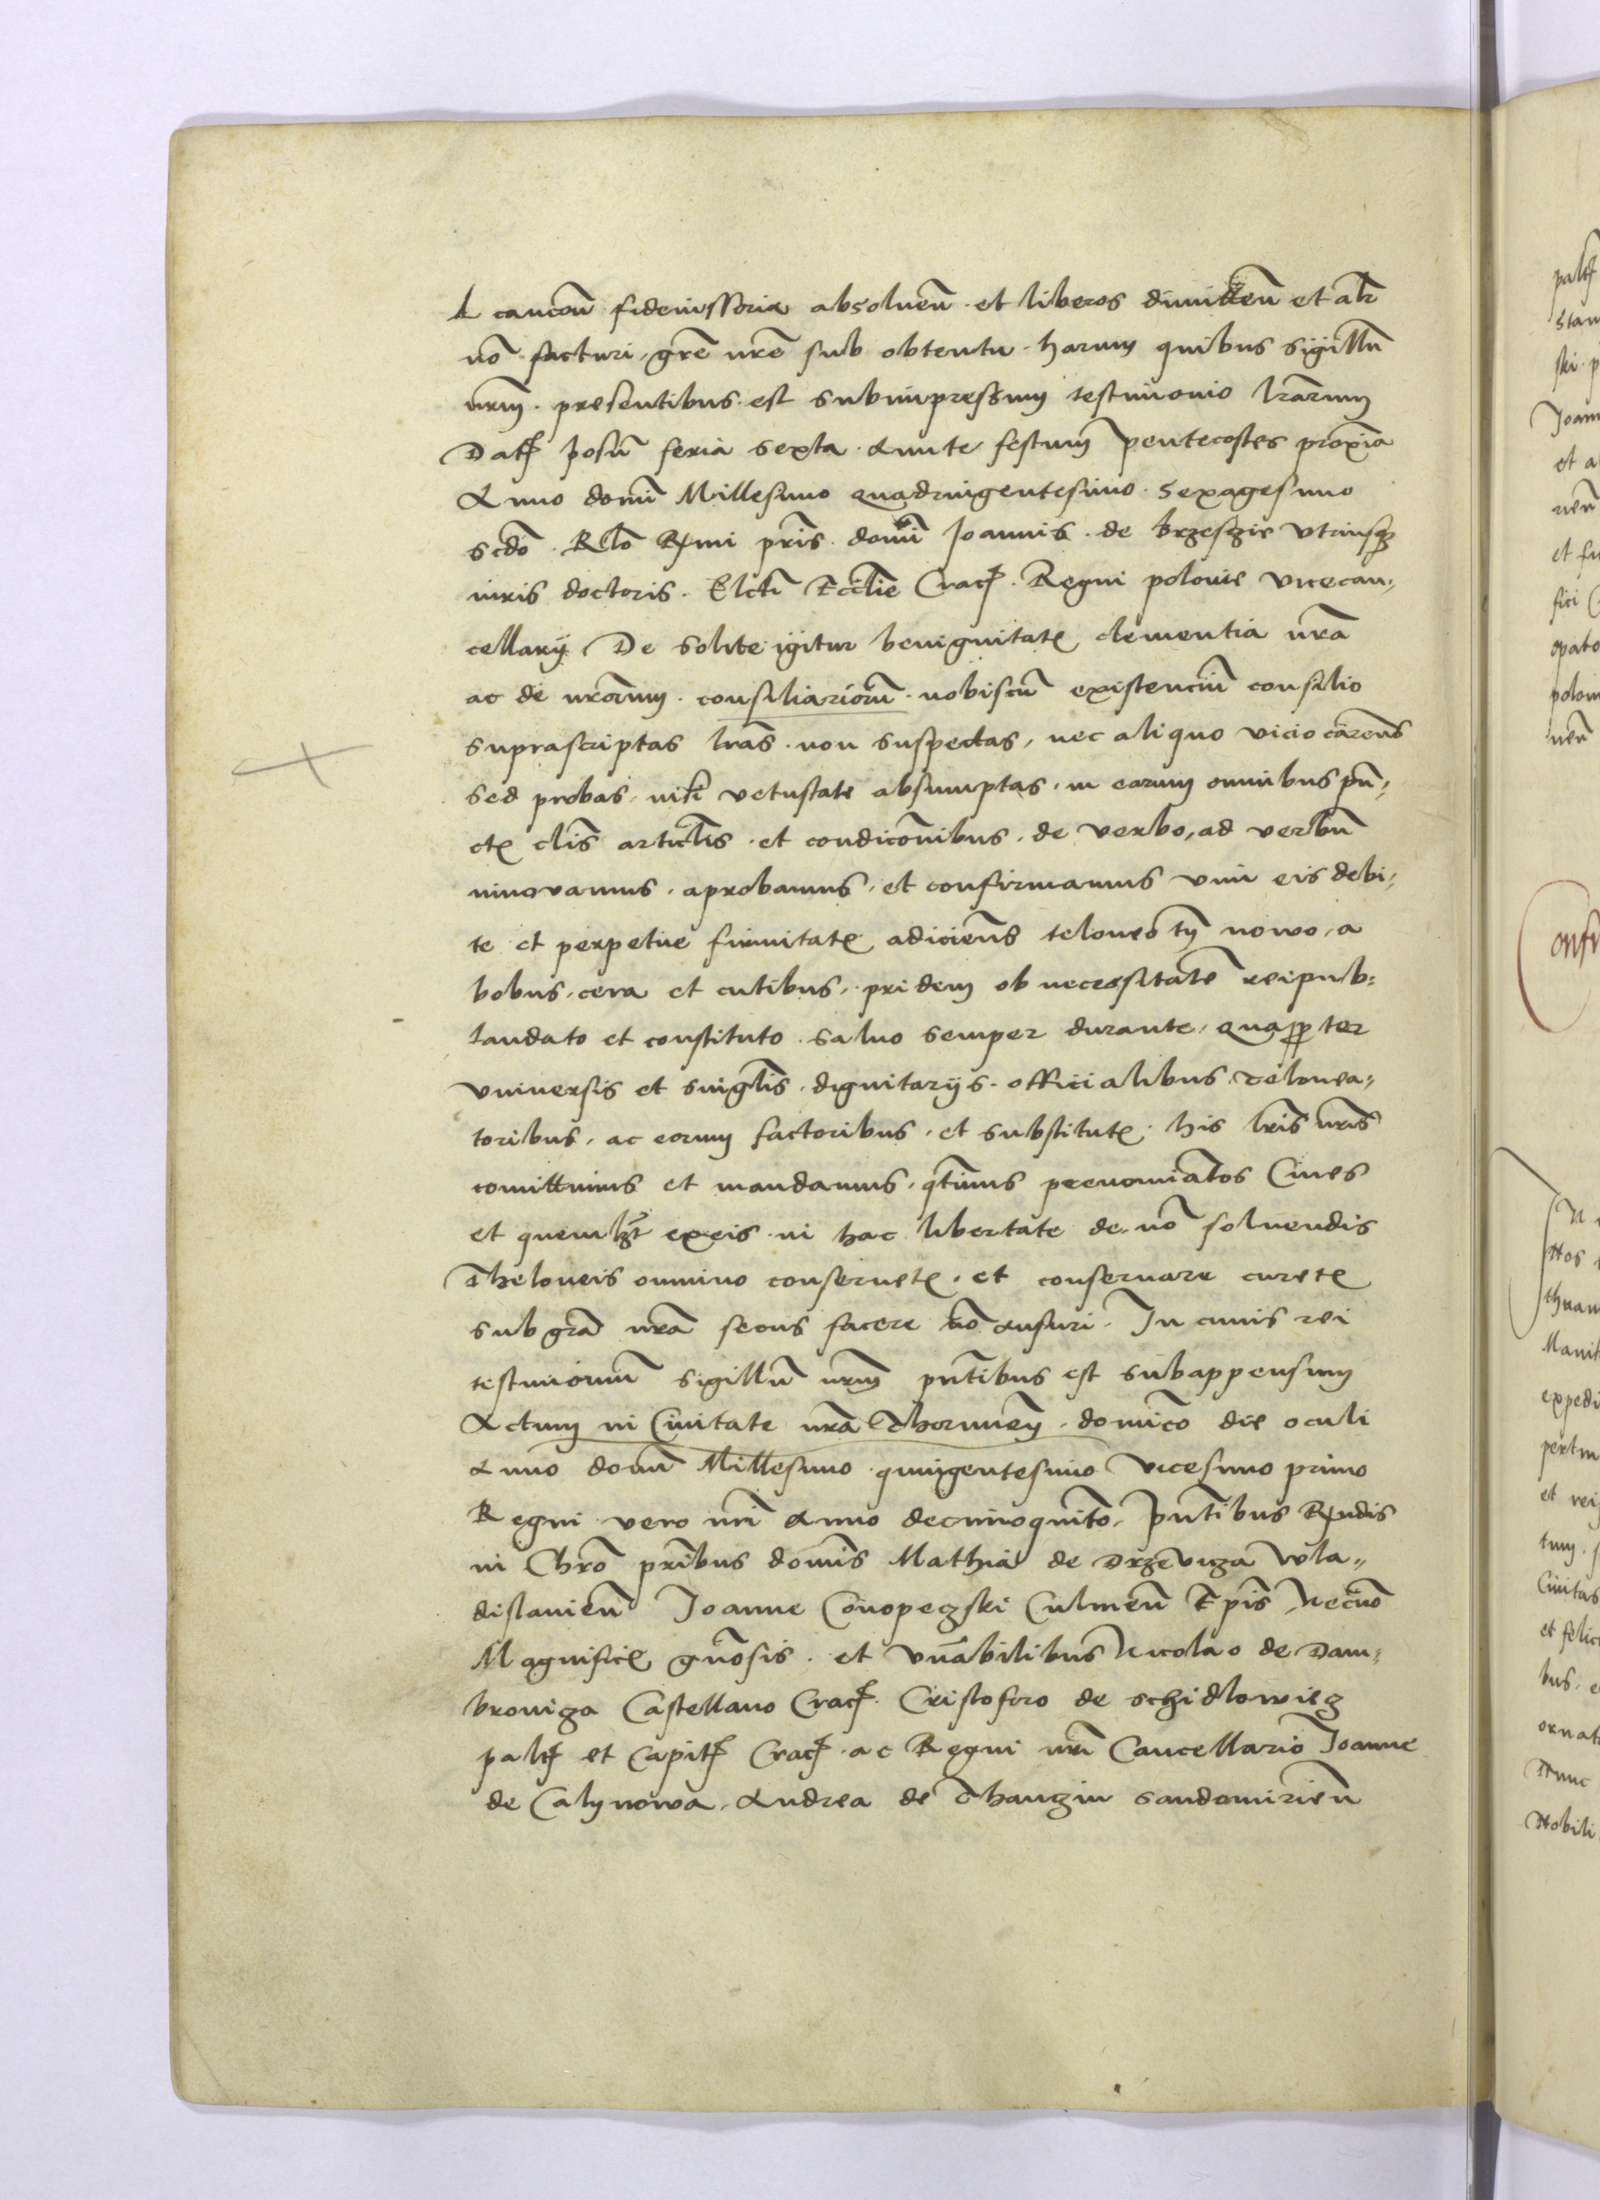 A cauc̄on̄ fideiussoria absoluen̄. et liberos dimitten̄ et alr̄
nō facturi, grē nrē sub obtentu. harum quibus sigillū
nr̄m. presentibus. est subimpressum testimonio lrārum
Dat̄ posn̄ feria sexta. Annte festum pentecostes proxīa
Anno domī Millesimo quadringentesimo. sexagesimo
scdō. Rlō Rmi pris. domī Joannis. de brzeszie vtriusq3
iuris doctoris. Elctī Eccliē Crac̄. Regni polonie vicecan,
cellarij De solite igitur benignitate clementia nr̄a
ac de nrōrum. consiliariorū. nobiscū existenciū consilio
suprascriptas lrās. non suspectas, nec aliquo vicio carens̄
sed probas. nisi vetustate absumptas. in earum omnibus pn̄,
ctis clīs articlīs. et condiciōnibus. de verbo, ad verbū
innovamus. aprobamus. et confirmamus vim eis debi,
te et perpetue firmitatis adiciens̄ teloneo tn̄ nowo, a
bobus, cera et cutibus, pridem ob necessitatē reipub:
laudato et constituto. saluo semper durante, quappter
vniuersis et singlīs. dignitarijs. officialibus. Telonea,,
toribus, ac eorum factoribus. et substitutis. his lrīs nrīs
comittimus et mandamus, qtinus prenomiatos Ciues
et quemlzt ex eis in hac libertate de nō soluendis
Theloneis omnino conseruetis. et conseruare curetis
sub grā nrā secus facere nō ausuri. In cuius rei
testimoniū sigillū nrm̄ pn̄tibus est subappensum
Actum in Ciuitate nrā Thorunen̄. dominico die oculi
anno domī Millesimo quingentesimo vicesimo primo
Regni vero nrī Anno decimoquīto. Pn̄tibus Rndis
in Chrō pribus domīs Mathia de Drzeviza wla,,
dislauien̄ Joanne Conopeczski Culmen̄ Epīs, Necnō
Magnificis gnōsis. et vn̄abilibus Nicolao de Dam,
broviza Castellano Crac̄. Cristoforo de schidlowiez
palt̄ et Capit̄ Crac̄. ac Regni nrī Cancellario Joanne
de Calynowa, Andrea de Thanzin Sandomirien̄